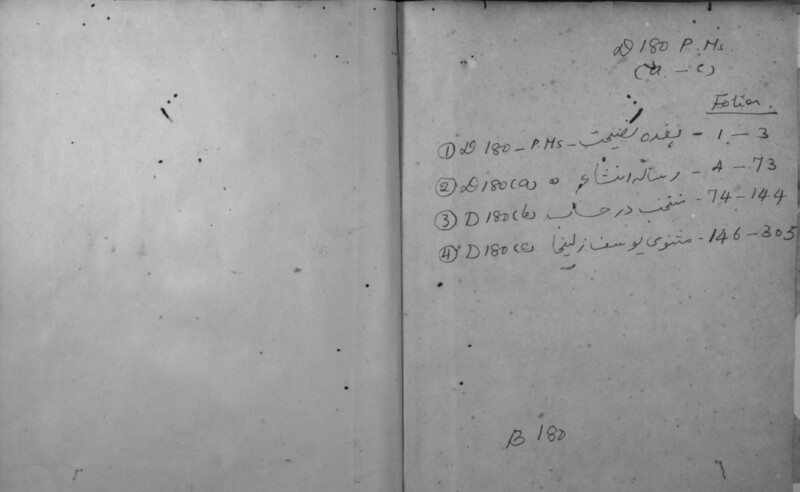 D 180 P. Ms.
(a - c)
Folios.
① D 180 - P. Ms - ہفدہ نصیحت - 1 - 3
② D 180(a) رسالہ انشاء - 4 - 73
③ D 180(b) منتخب در حساب - 74 - 144
④ D 180(c) مثنوی یوسف زلیخا - 146 - 305
B 180